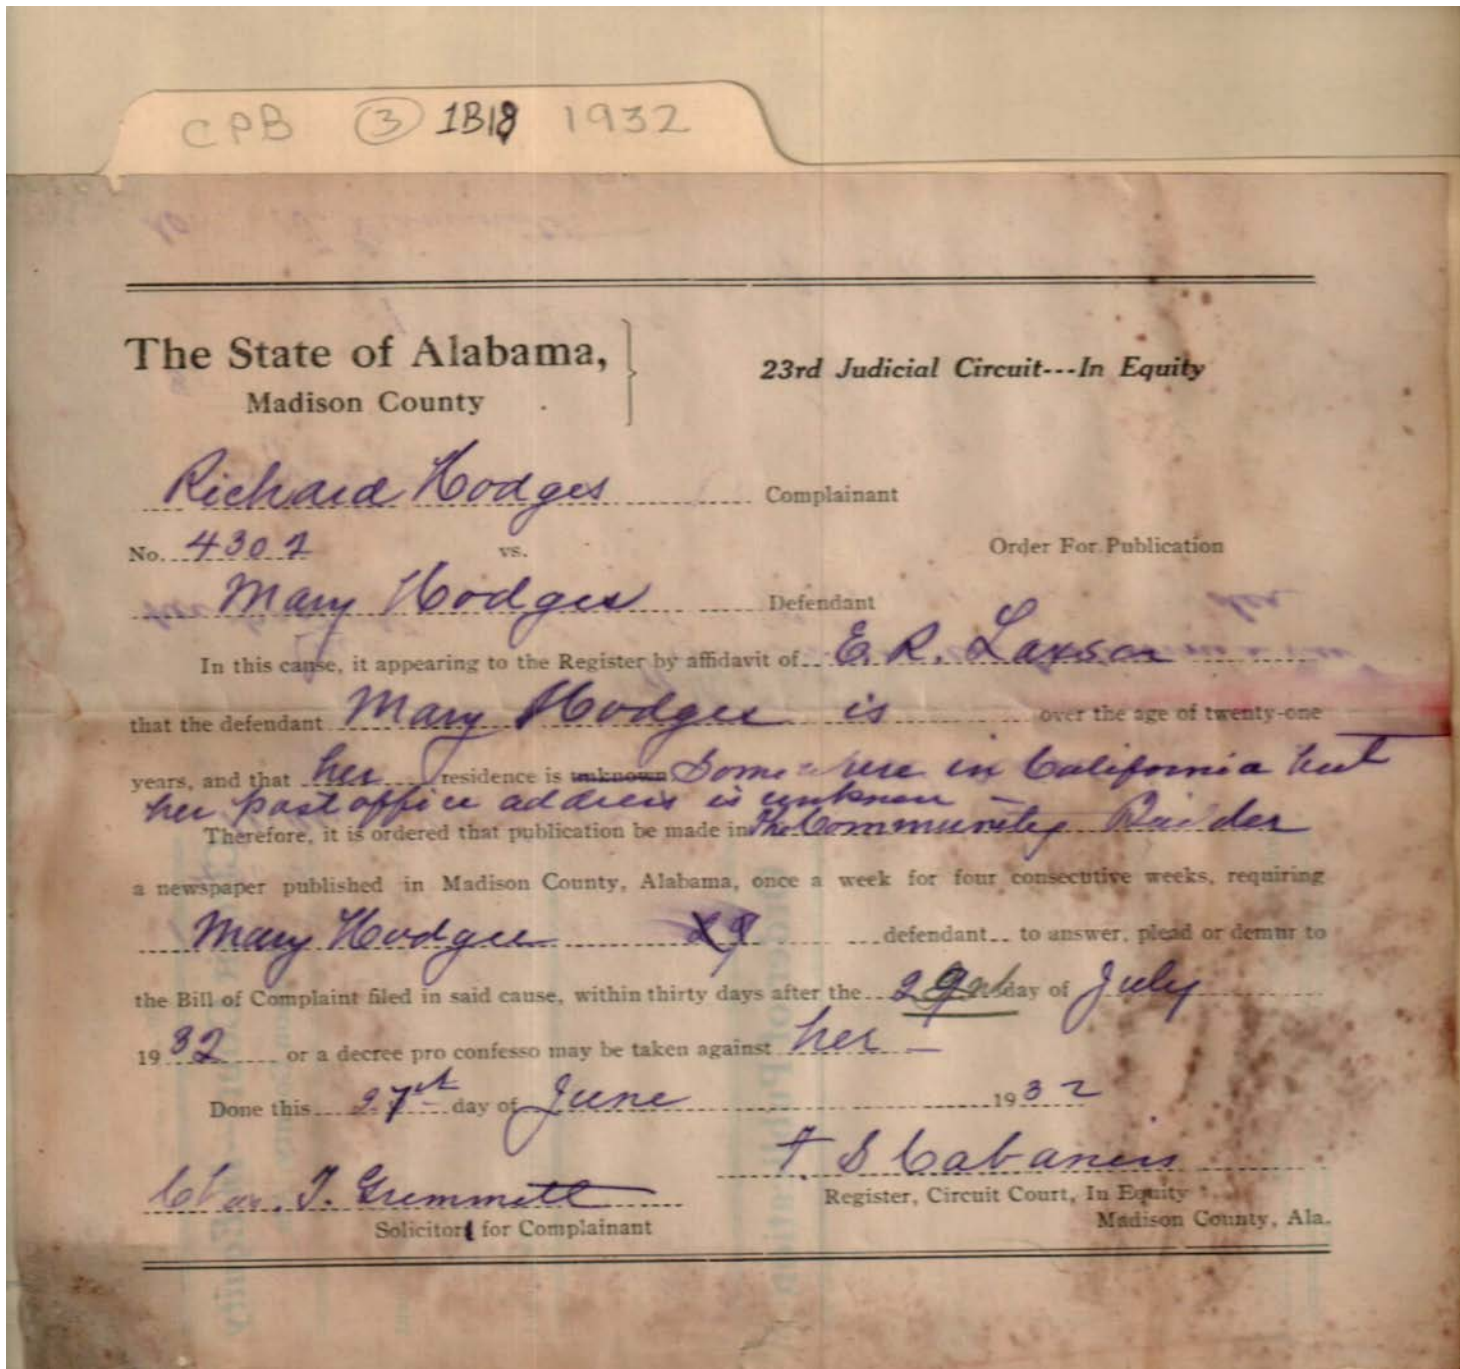 CPB ③ 1B18 1932
The State of Alabama,
Madison County
23rd Judicial Circuit---In Equity
Richard Hodges Complainant
No. 4302 vs. Order For Publication
Mary Hodges Defendant
In this cause, it appearing to the Register by affidavit of E. R. Laxson
that the defendant Mary Hodges is over the age of twenty-one
years, and that her residence is unknown Somewhere in California but
her post office address is unknown —
Therefore, it is ordered that publication be made in The Community Builder
a newspaper published in Madison County, Alabama, once a week for four consecutive weeks, requiring
Mary Hodges defendant to answer, plead or demur to
the Bill of Complaint filed in said cause, within thirty days after the 29 day of July
1932 or a decree pro confesso may be taken against her —
Done this 27 day of June 1932
T. S Cabaniss
Register, Circuit Court, In Equity
Madison County, Ala.
Chas. T. Grimmett
Solicitor for Complainant